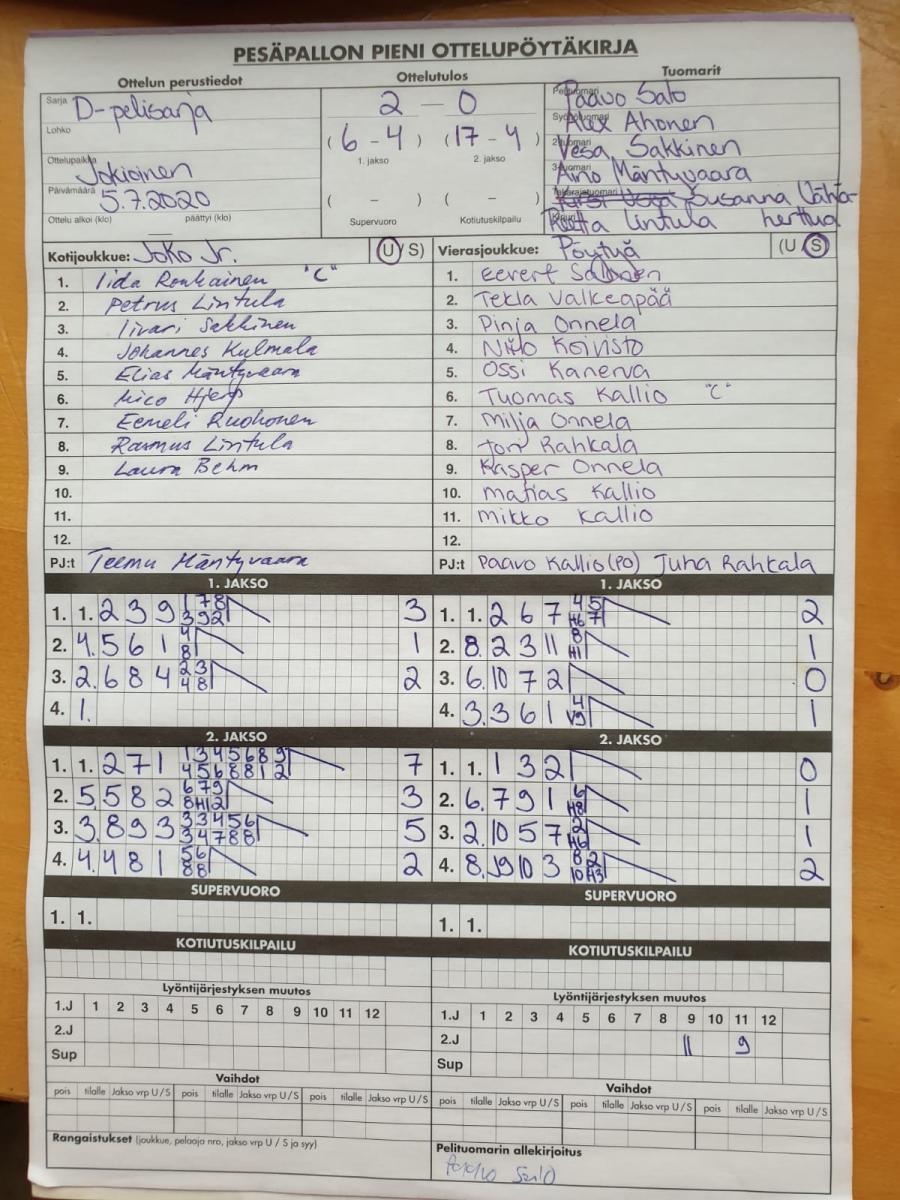 PESÄPALLON PIENI OTTELUPÖYTÄKIRJA
Ottelun perustiedot
Ottelutulos
Tuomarit
Sarja D-pelisarja
Lohko
Ottelupaikka Jokioinen
Päivämäärä 5.7.2020
Ottelu alkoi (klo) päättyi (klo)
2 – 0
(6 – 4) (17 – 4)
1. jakso 2. jakso
( – ) ( – )
Supervuoro Kotiutuskilpailu
Pelituomari Paavo Salo
Syöttötuomari Alex Ahonen
2-tuomari Vesa Sakkinen
3-tuomari Aino Mäntyvaara
Takarajatuomari Susanna Vähä-
Kirjuri Reetta Lintula herttua
Kotijoukkue: JoKo Jr. (U/S)
1. Iida Ronkainen "C"
2. Petrus Lintula
3. Iivari Sakkinen
4. Johannes Kulmala
5. Elias Mäntyvaara
6. Mico Hjerp
7. Eemeli Ruohonen
8. Rasmus Lintula
9. Laura Behm
10.
11.
12.
PJ:t Teemu Mäntyvaara
Vierasjoukkue: Pöytyä (U/S)
1. Eevert Salonen
2. Tekla Valkeapää
3. Pinja Onnela
4. Niilo Koivisto
5. Ossi Kanerva
6. Tuomas Kallio "C"
7. Milja Onnela
8. Toni Rahkala
9. Kasper Onnela
10. Matias Kallio
11. Mikko Kallio
12.
PJ:t Paavo Kallio (PO) Juha Rahkala
1. JAKSO
1. 1. 2 3 9 1 7 8 3
3 9 2
2. 4. 5 6 1 4 1
8
3. 2. 6 8 4 2 3 2
4 8
4. 1.
1. JAKSO
1. 1. 2 6 7 4 5 2
H6 7
2. 8. 2 3 11 8 1
H1
3. 6. 10 7 2 0
4. 3. 3 6 1 4 1
V9
2. JAKSO
1. 1. 2 7 1 1 3 4 5 6 8 9 7
4 5 6 8 8 1 2
2. 5. 5 8 2 6 7 9 3
8 H1 2
3. 3. 8 9 3 3 3 4 5 6 5
3 4 7 8 8
4. 4. 4 8 1 5 6 2
8 8
2. JAKSO
1. 1. 1 3 2 0
2. 6. 7 9 1 6 1
H8
3. 2. 10 5 7 2 1
H6
4. 8. 9 10 3 8 2 2
10 H3
SUPERVUORO
1. 1.
SUPERVUORO
1. 1.
KOTIUTUSKILPAILU
KOTIUTUSKILPAILU
Lyöntijärjestyksen muutos
1.J 1 2 3 4 5 6 7 8 9 10 11 12
2.J
Sup
Lyöntijärjestyksen muutos
1.J 1 2 3 4 5 6 7 8 9 10 11 12
2.J 11 9
Sup
Vaihdot
pois tilalle Jakso vrp U / S pois tilalle Jakso vrp U / S pois tilalle Jakso vrp U / S
Vaihdot
pois tilalle Jakso vrp U / S pois tilalle Jakso vrp U / S pois tilalle Jakso vrp U / S
Rangaistukset (joukkue, pelaaja nro, jakso vrp U / S ja syy)
Pelituomarin allekirjoitus